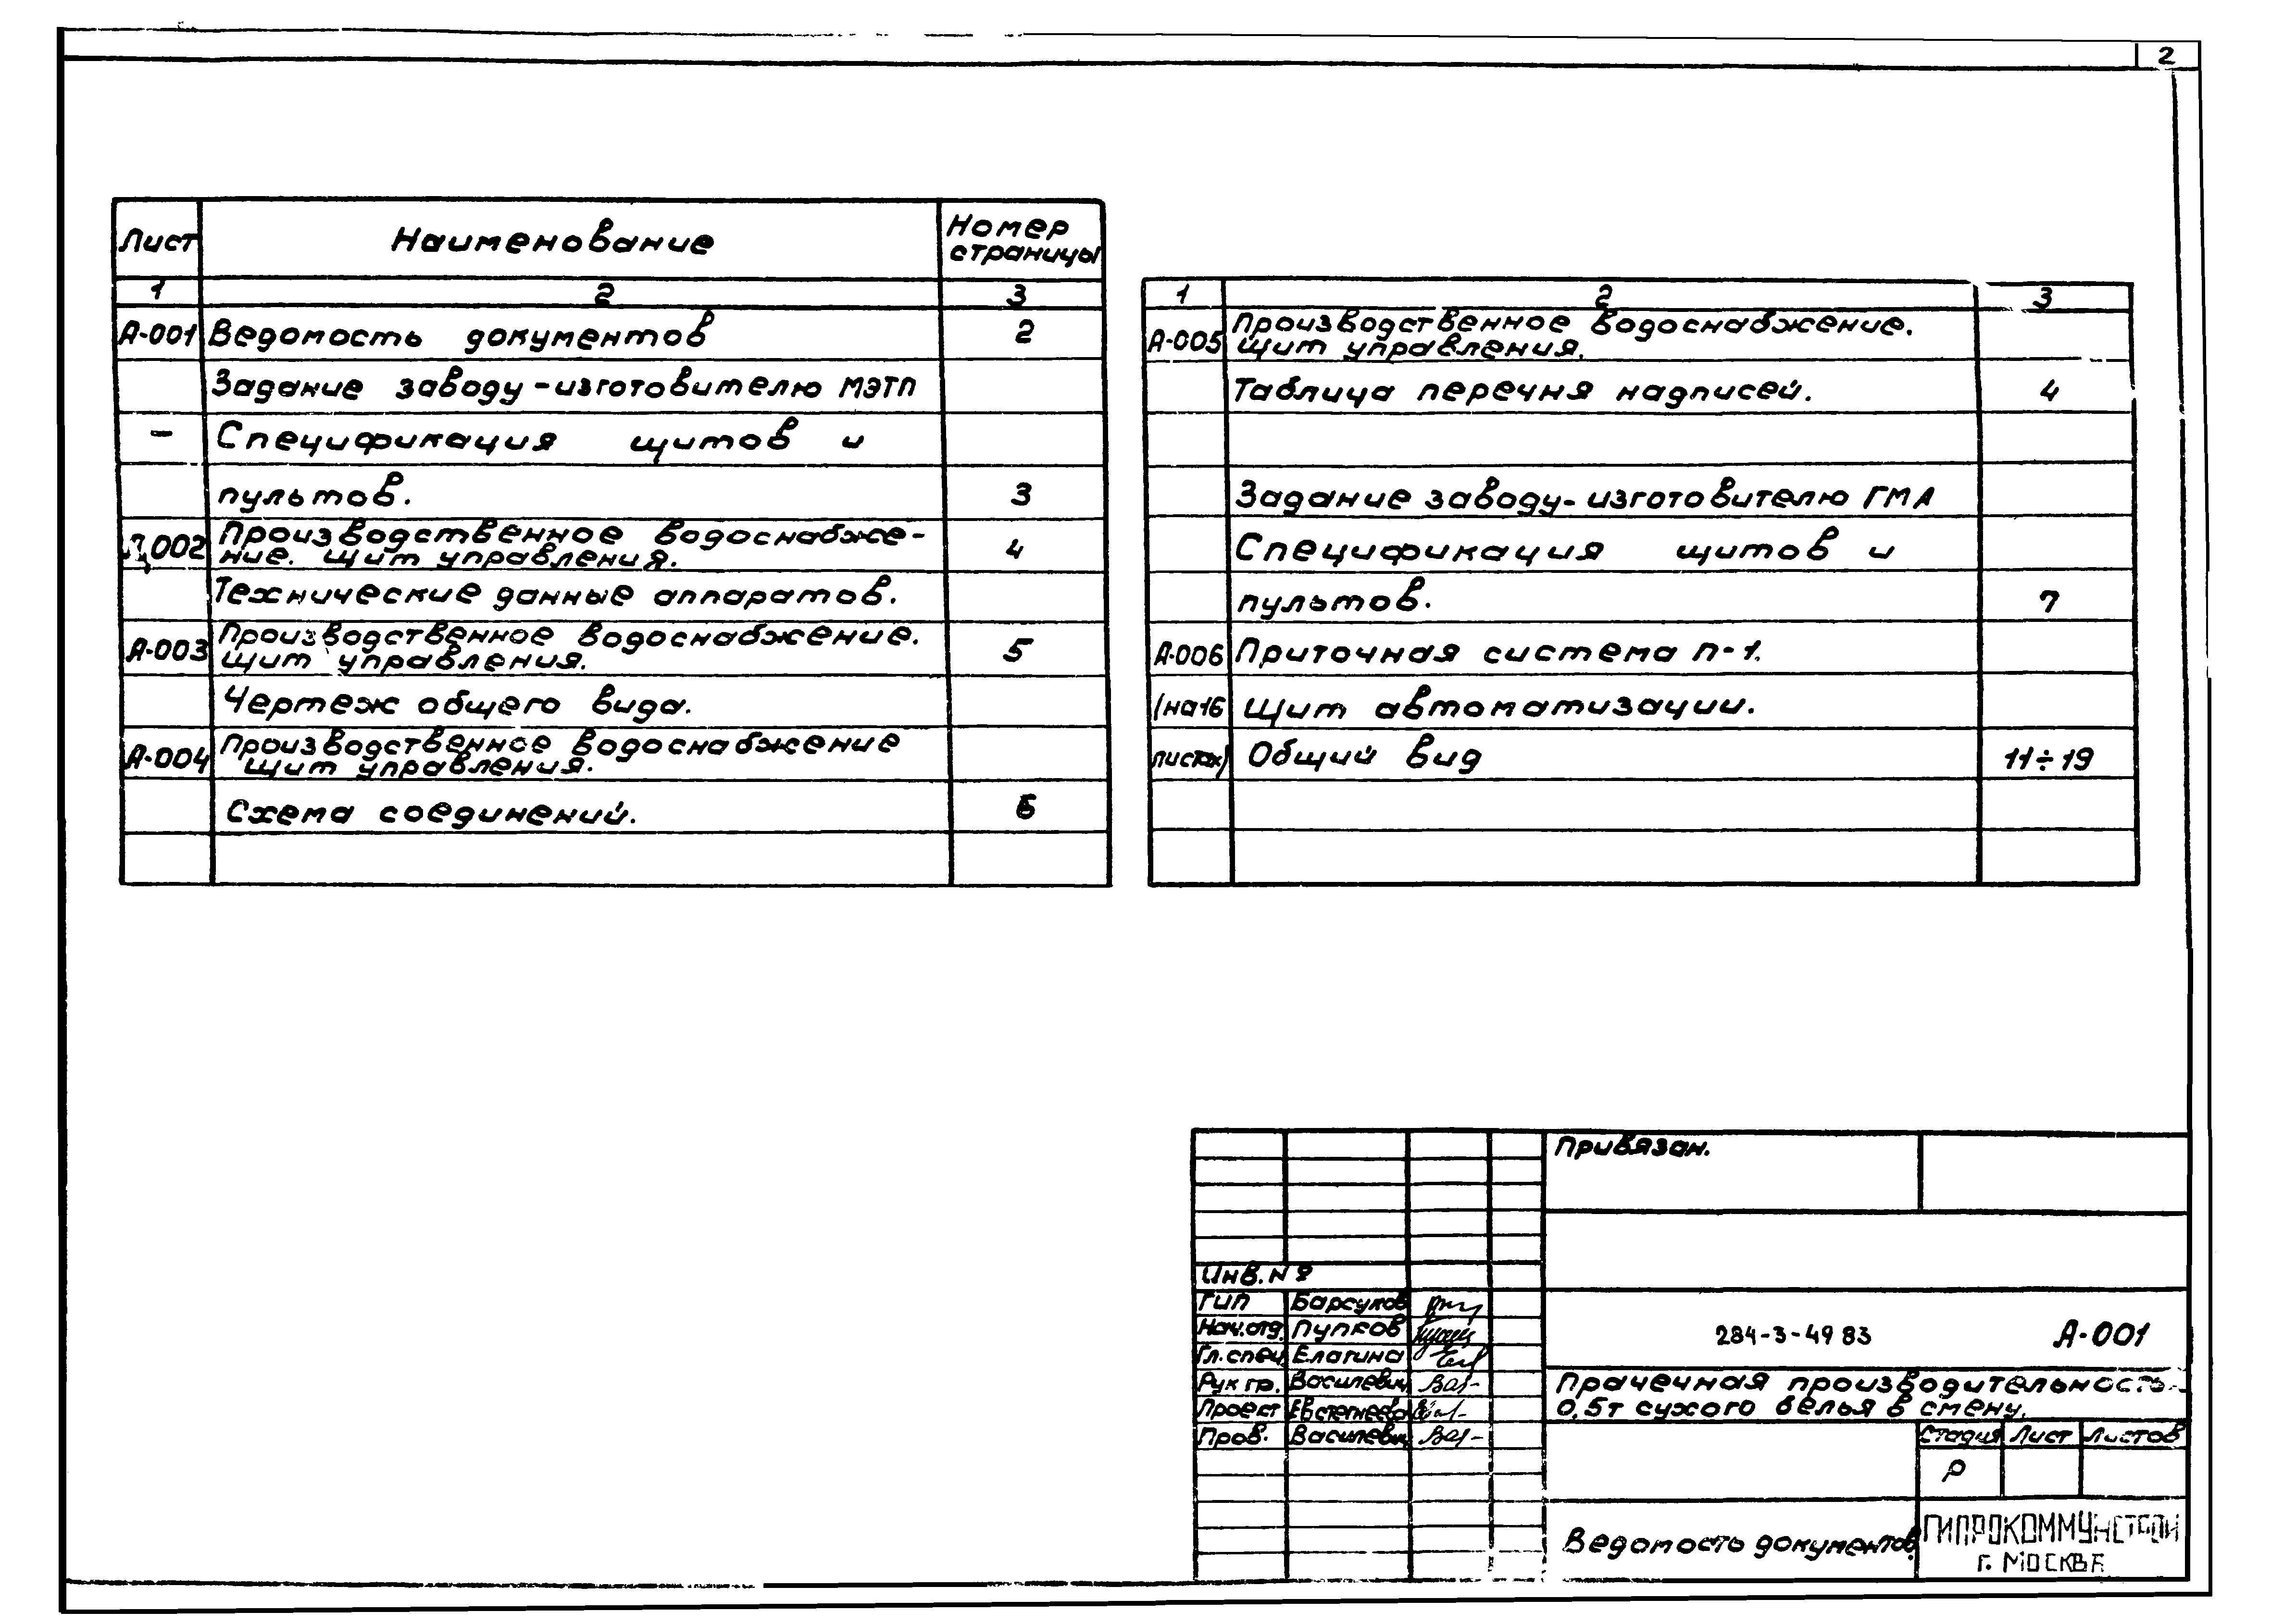 2
Лист Наименование Номер страницы
1 2 3
А-001 Ведомость документов 2
Задание заводу-изготовителю МЭТП
- Спецификация щитов и
пультов. 3
002 Производственное водоснабже-
ние. Щит управления. 4
Технические данные аппаратов.
А-003 Производственное водоснабжение.
Щит управления. 5
Чертеж общего вида.
А-004 Производственное водоснабжение
щит управления.
Схема соединений. 6
1 2 3
А-005 Производственное водоснабжение.
Щит управления.
Таблица перечня надписей. 4
Задание заводу-изготовителю ГМА
Спецификация щитов и
пультов. 7
А-006 Приточная система П-1.
(на 16 Щит автоматизации.
листах) Общий вид 11÷19
Привязан.
Инв. №
ГИП Барсуков
Нач.отд. Пупков
Гл.спец. Елагина
Рук гр. Василевич
Проект Евстегнеева
Пров. Василевич
284-3-49 83 А-001
Прачечная производительность
0,5т сухого белья в смену.
Стадия Лист Листов
Р
Ведомость документов
ГИПРОКОММУНСТРОЙ
г. МОСКВА